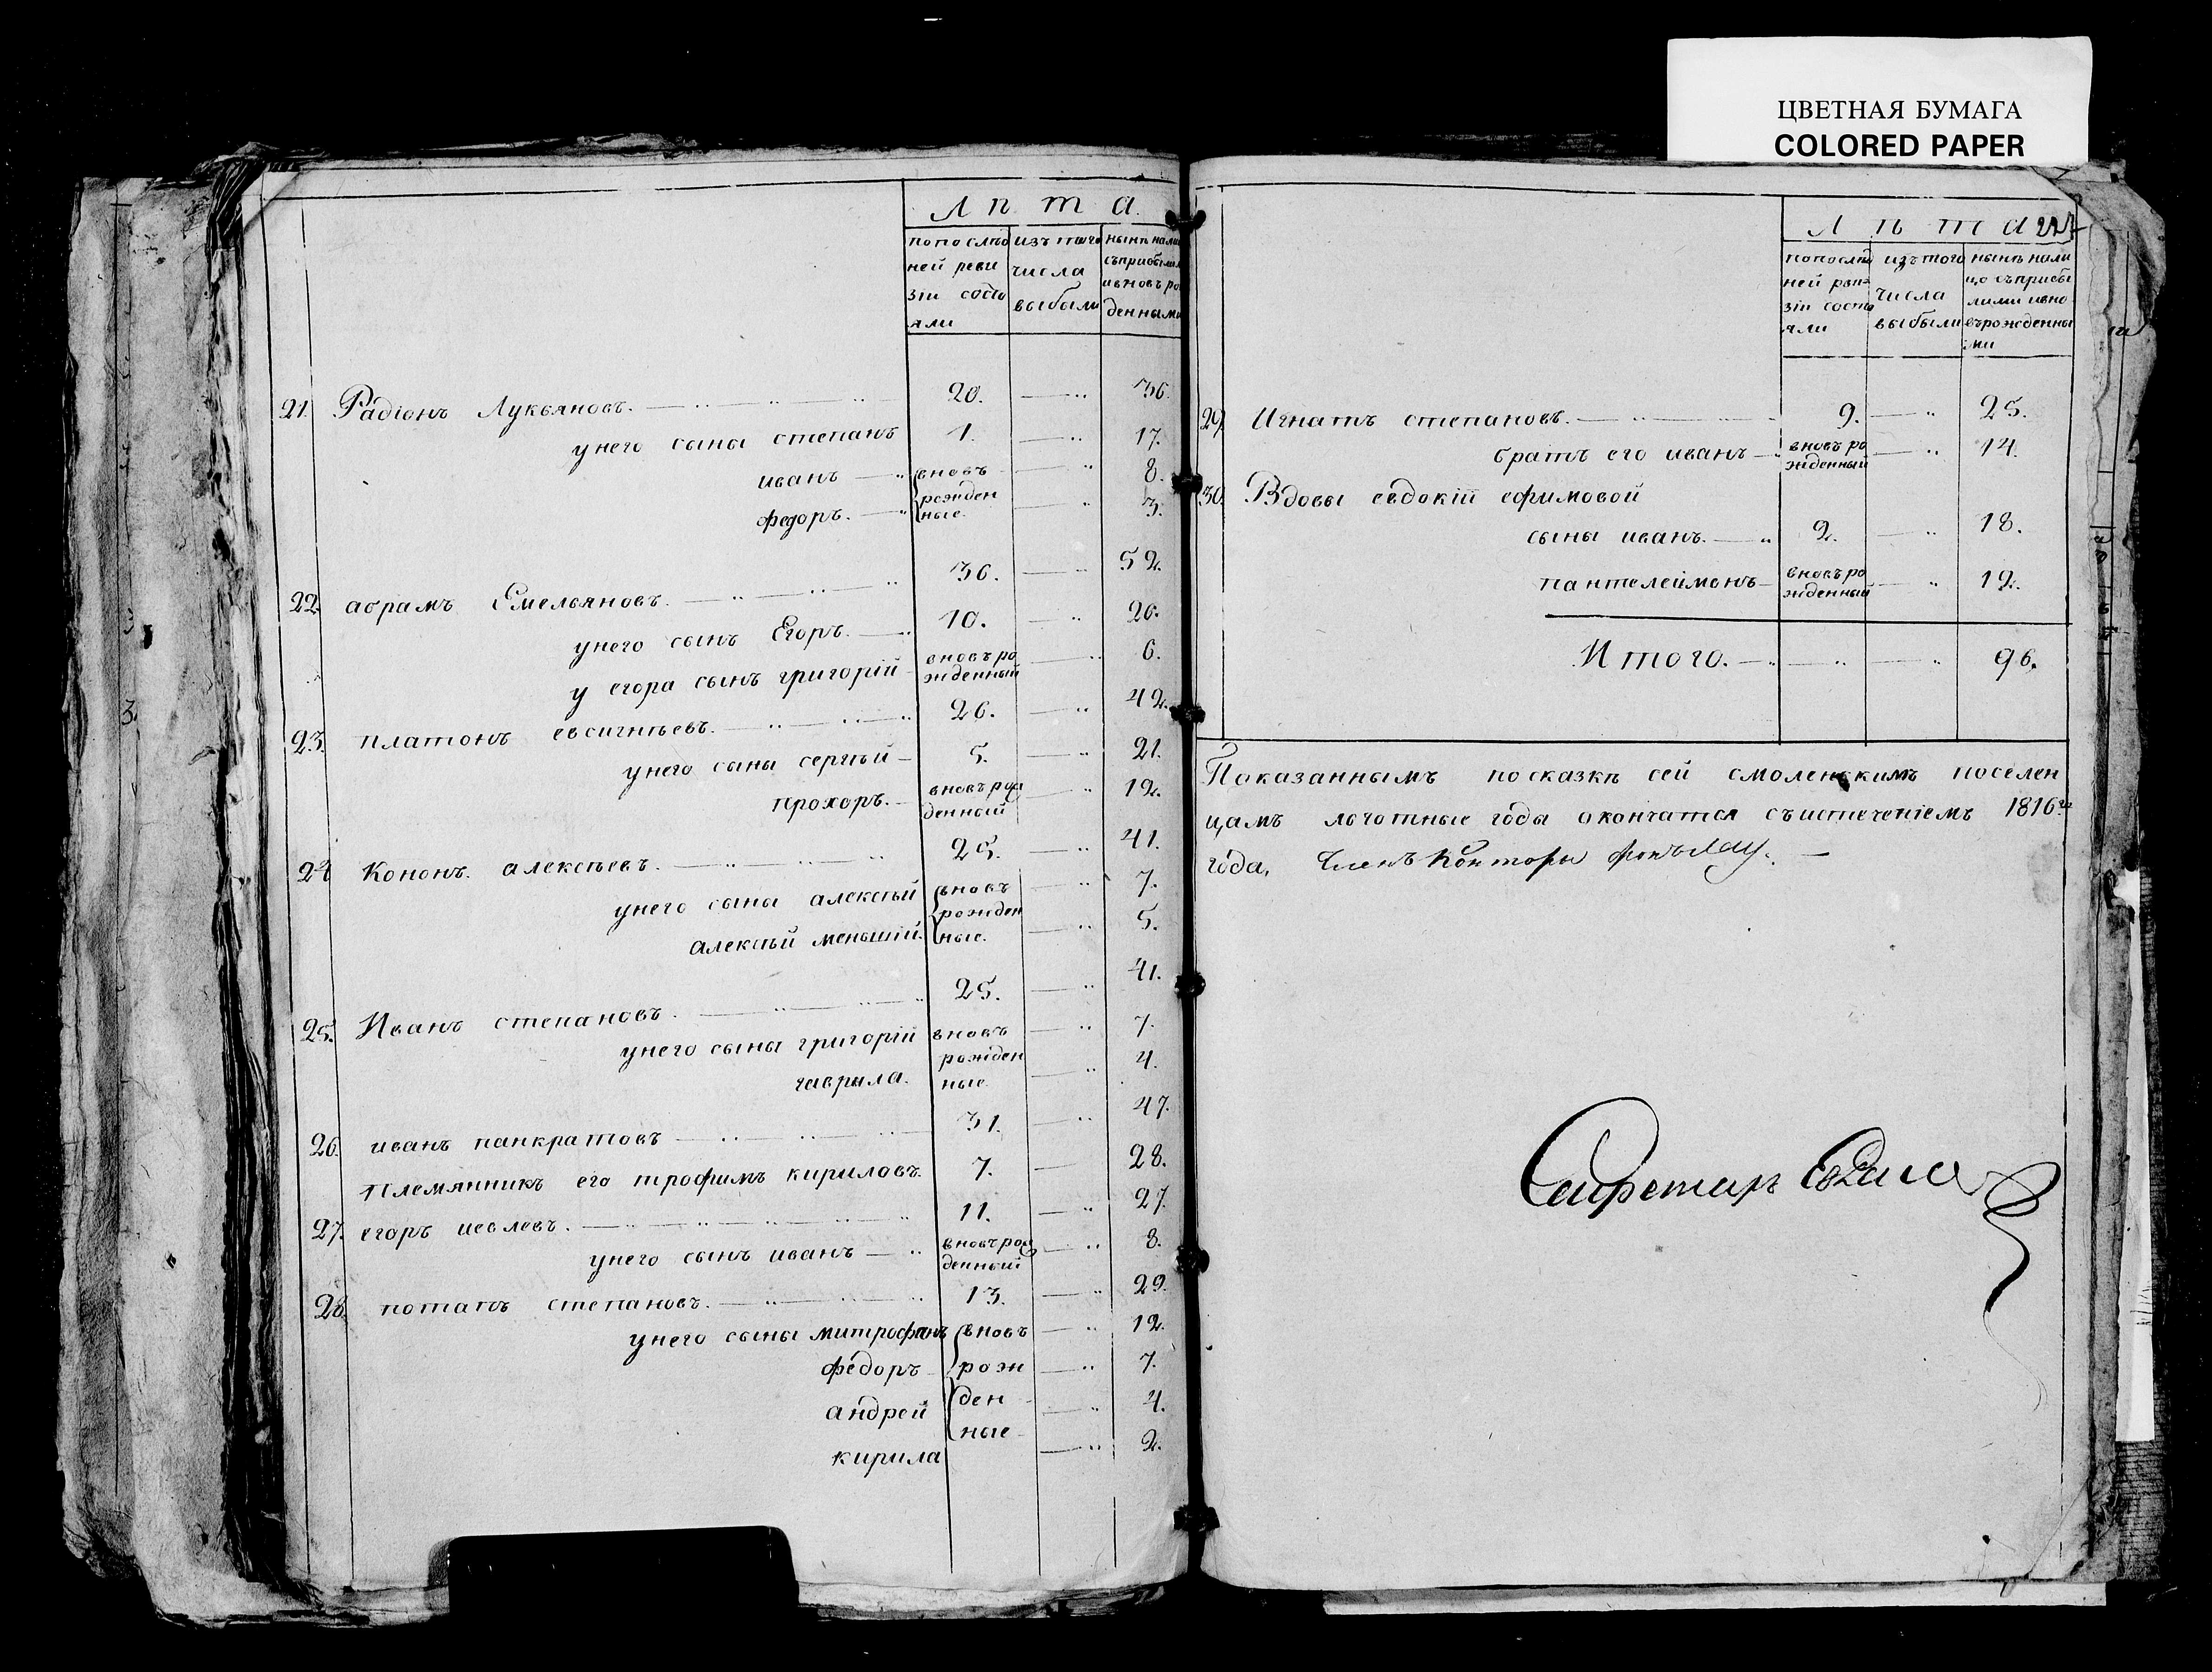 ЦВЕТНАЯ БУМАГА
COLORED PAPER
Лѣта.
попослѣд ней реви зіи состо яли
изъ того числа выбыли
нынѣ нали съприбыл ивновъ ро денными
21. Радіонъ Лукьяновъ. 20. 36.
унего сыны степанъ 1. 17.
иванъ вновъ 8.
федоръ. рожден ные. 3.
22. абрамъ Емельяновъ. 36. 52.
унего сынъ Егоръ. 10. 26.
у егора сынъ григорій вновъ ро жденный 6.
23. платонъ евсигнѣевъ. 26. 42.
унего сыны сергѣй 5. 21.
прохоръ. вновъ рож денный 12.
24 Кононъ. алексѣевъ. 25. 41.
унего сыны алексѣй вновъ 7.
алексѣй меньшій. рожден ные. 5.
25. Иванъ степановъ. 25. 41.
унего сыны григорій вновъ 7.
гаврила. рожден ные. 4.
26. иванъ панкратовъ 31. 47.
Племянникъ его трофимъ кириловъ. 7. 28.
27. егоръ иевлевъ. 11. 27.
унего сынъ иванъ вновърож денный 8.
28. потапъ степановъ. 13. 29.
унего сыны митрофанъ вновъ 12.
федоръ рож 7.
андрей ден 4.
кирила ные 2.
Лѣта
попослѣд ней рев зіи состо яли
изъ того числа выбыли
нынѣ нали цо съприбы лими ивно върожденны ми
29. Игнатъ степановъ. 9. 25.
братъ его иванъ вновъ ро жденный 14.
30. Вдовы евдокіи ефимовой
сыны иванъ. 2. 18.
пантелеймонъ вновъ ро жденный 12.
Итого. 96.
Показаннымъ по сказкѣ сей смоленскимъ поселен
цамъ льготные годы окончатся съистеченіемъ 1816го
года, Членъ Конторы фонъ
Секретарь